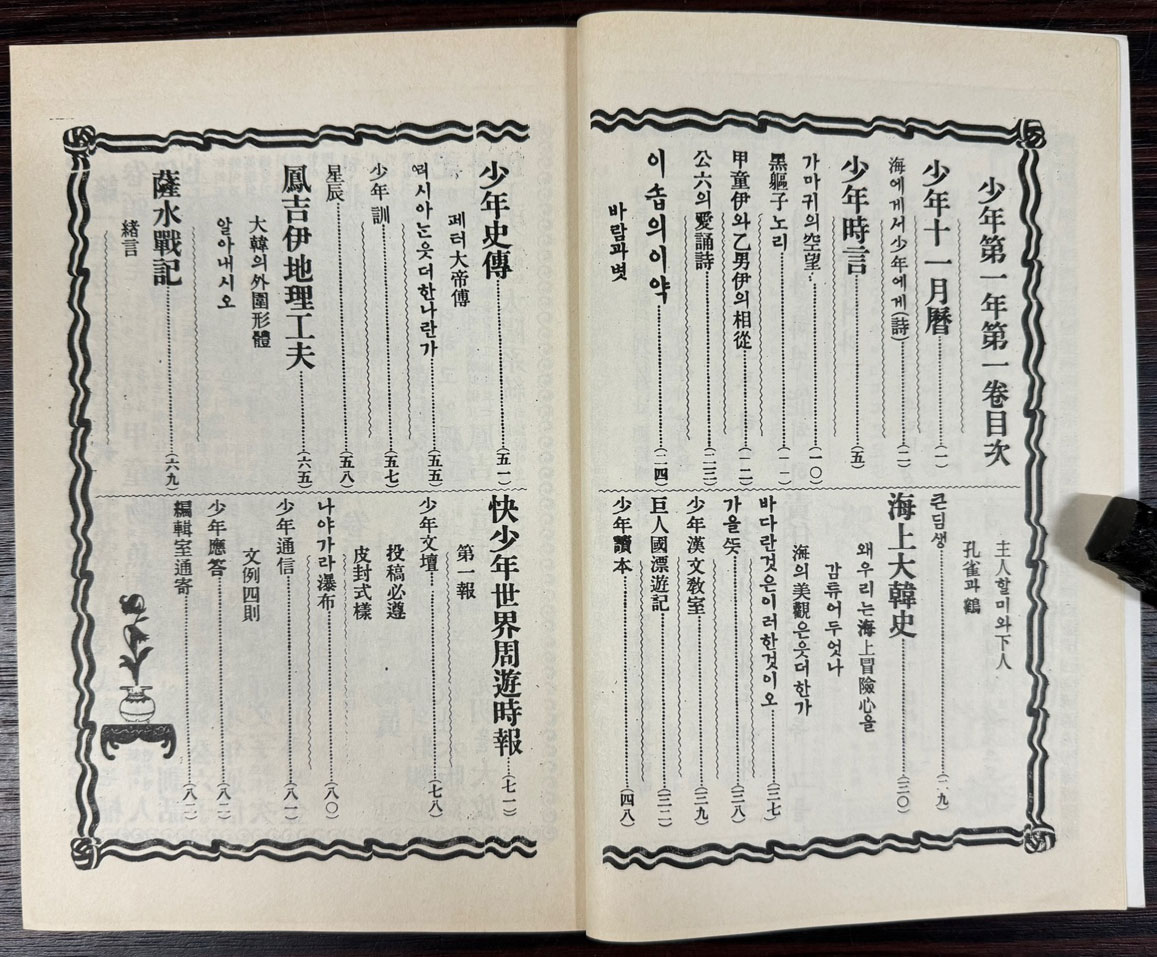 少年第一年第一卷目次
少年十一月曆 (一)
海에게서少年에게(詩) (二)
少年時言 (五)
가마귀의空望 (一〇)
黑軀子노리 (一一)
甲童伊와乙男伊의相從 (一二)
公六의愛誦詩 (二三)
이솝의이약 (二四)
바람과볏
主人할미와下人
孔雀과鶴
큰딤생 (二九)
海上大韓史 (三〇)
왜우리는海上冒險心을
감튜어두엇나
海의美觀은웃더한가
바다란것은이러한것이오 (三七)
가을뜻 (三八)
少年漢文敎室 (三九)
巨人國漂遊記 (三二)
少年讀本 (四八)
少年史傳 (五一)
페터大帝傳
러시아는웃더한나란가 (五五)
少年訓 (五七)
星辰 (五八)
鳳吉伊地理工夫 (六五)
大韓의外圍形體
알아내시오
薩水戰記 (六九)
緖言
快少年世界周遊時報 (七一)
第一報
少年文壇 (七八)
投稿必遵
皮封式樣
나야가라瀑布 (八〇)
少年通信 (八一)
文例四則
少年應答 (八二)
編輯室通寄 (八二)